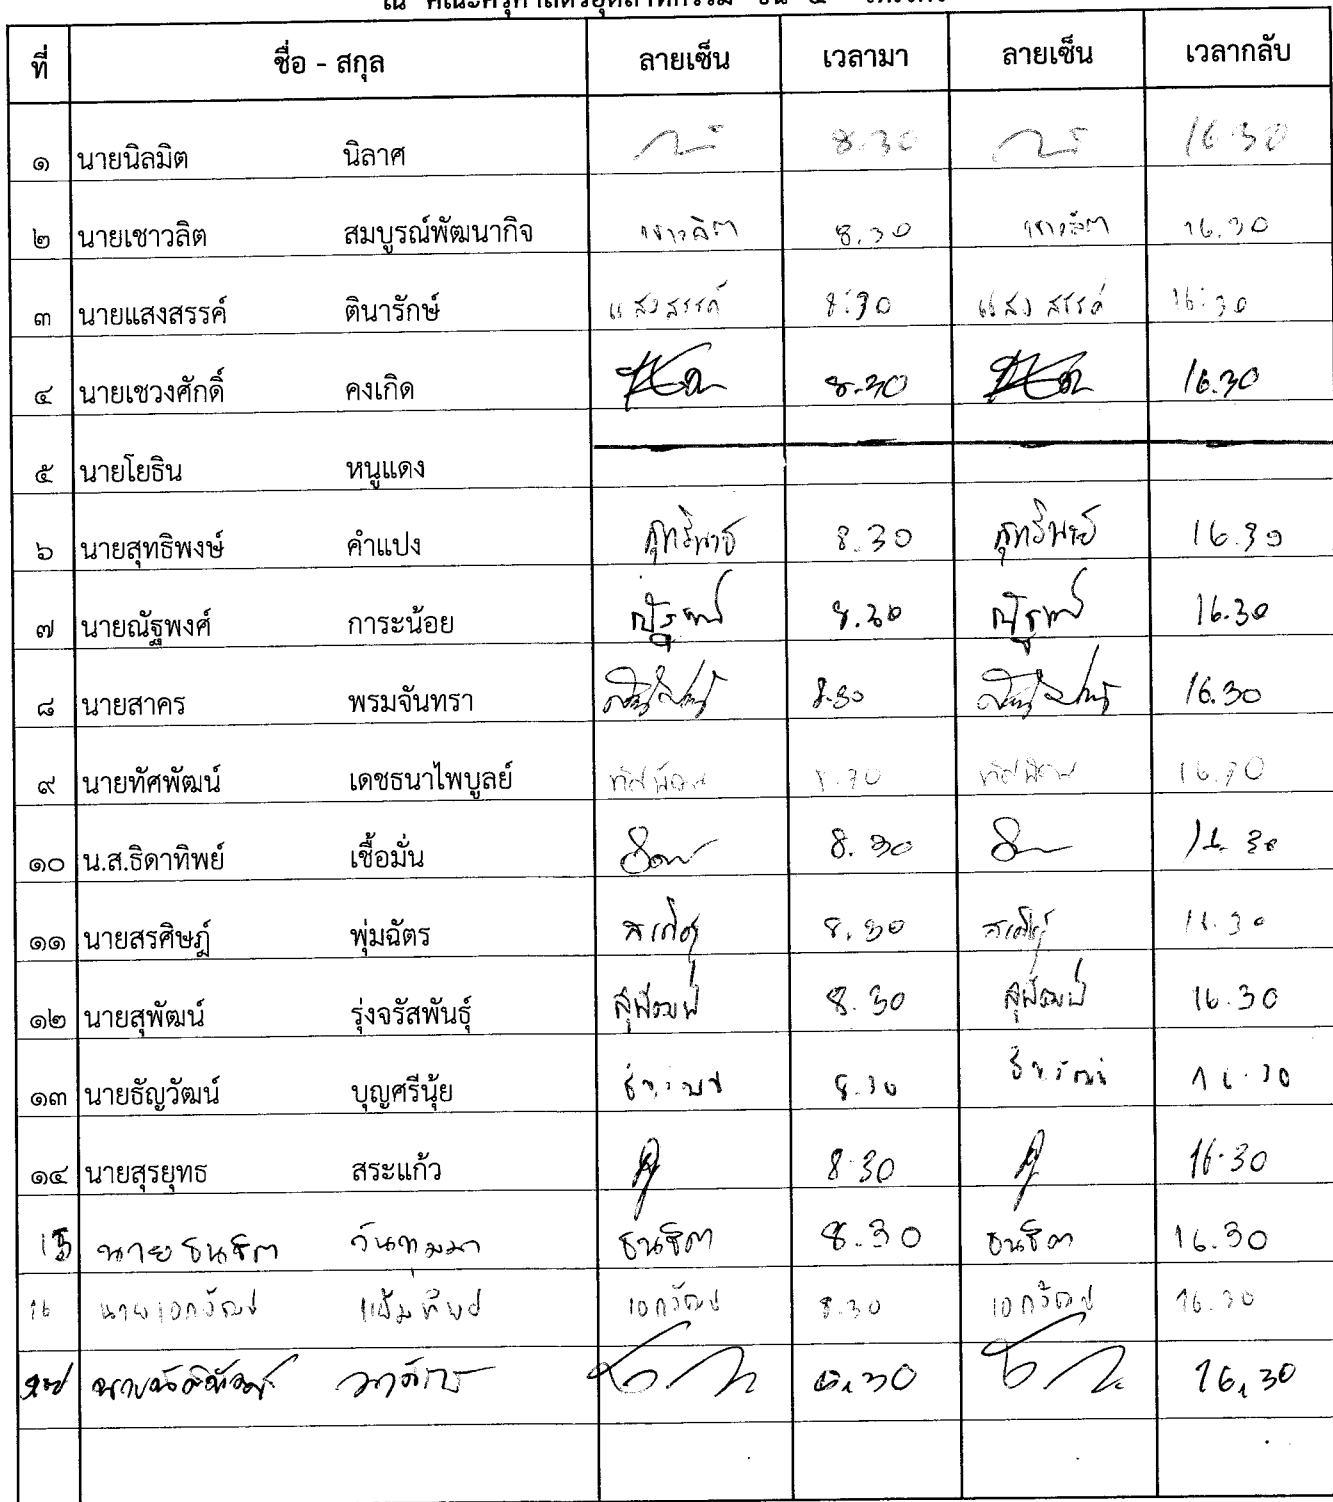 ที่ ชื่อ - สกุล ลายเซ็น เวลามา ลายเซ็น เวลากลับ
๑ นายนิลมิต นิลาศ 8.30 16.30
๒ นายเชาวลิต สมบูรณ์พัฒนากิจ เชาวลิต 8.30 เชาวลิต 16.30
๓ นายแสงสรรค์ ตินารักษ์ แสงสรรค์ 8:30 แสงสรรค์ 16:30
๔ นายเชวงศักดิ์ คงเกิด 8.30 16.30
๕ นายโยธิน หนูแดง
๖ นายสุทธิพงษ์ คำแปง สุทธิพงษ์ 8.30 สุทธิพงษ์ 16.30
๗ นายณัฐพงศ์ การะน้อย ณัฐพงศ์ 8.30 ณัฐพงศ์ 16.30
๘ นายสาคร พรมจันทรา 8.30 16.30
๙ นายทัศพัฒน์ เดชธนาไพบูลย์ ทัศพัฒน์ 8.30 ทัศพัฒน์ 16.30
๑๐ น.ส.ธิดาทิพย์ เชื้อมั่น 8.30 16.30
๑๑ นายสรศิษฎ์ พุ่มฉัตร 8.30 16.30
๑๒ นายสุพัฒน์ รุ่งจรัสพันธุ์ สุพัฒน์ 8.30 สุพัฒน์ 16.30
๑๓ นายธัญวัฒน์ บุญศรีนุ้ย 8.30 ธัญวัฒน์ 16.30
๑๔ นายสุรยุทธ สระแก้ว 8.30 16.30
15 นายธนชิต จันทุมมา ธนชิต 8.30 ธนชิต 16.30
16 นายเอกวัฒน์ แย้มทิพย์ เอกวัฒน์ 8.30 เอกวัฒน์ 16.30
8.30 16.30